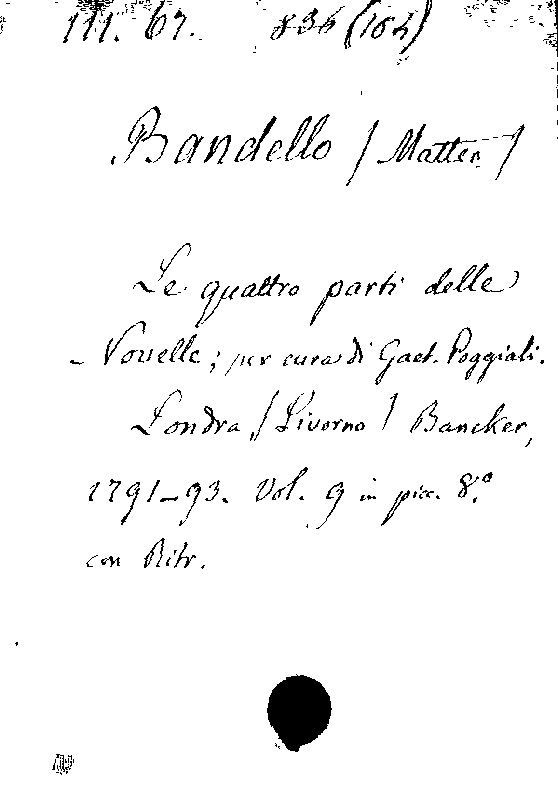 111. 67. 836 (104)
Bandello / Matteo /
Le quattro parti delle
Novelle; per cura di Gaet. Poggiali.
Londra / Livorno / Bancker,
1791-93. Vol. 9 in picc. 8.°
con Ritr.